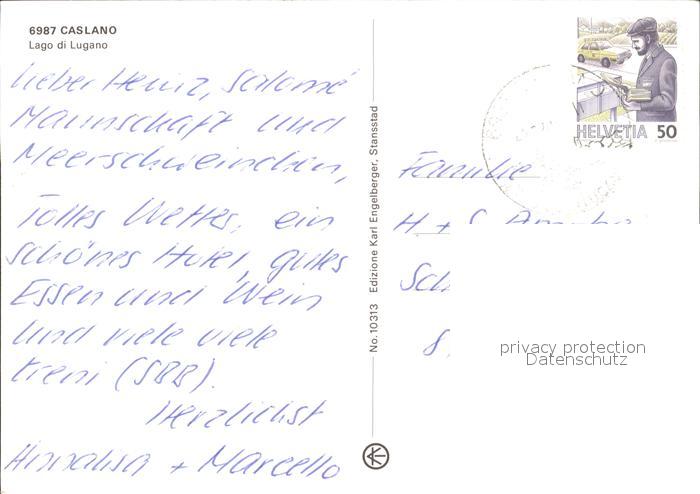 6987 CASLANO
Lago di Lugano
Lieber Heinz, Salomé
Mannschaft und
Meerschweinchen,
Tolles Wetter, ein
schönes Hotel, gutes
Essen und Wein
und viele viele
treni (SBB).
Herzlichst
Annalisa + Marcello
No. 10313 Edizione Karl Engelberger, Stansstad
HELVETIA 50
Familie
H + S
Sch
8
privacy protection
Datenschutz